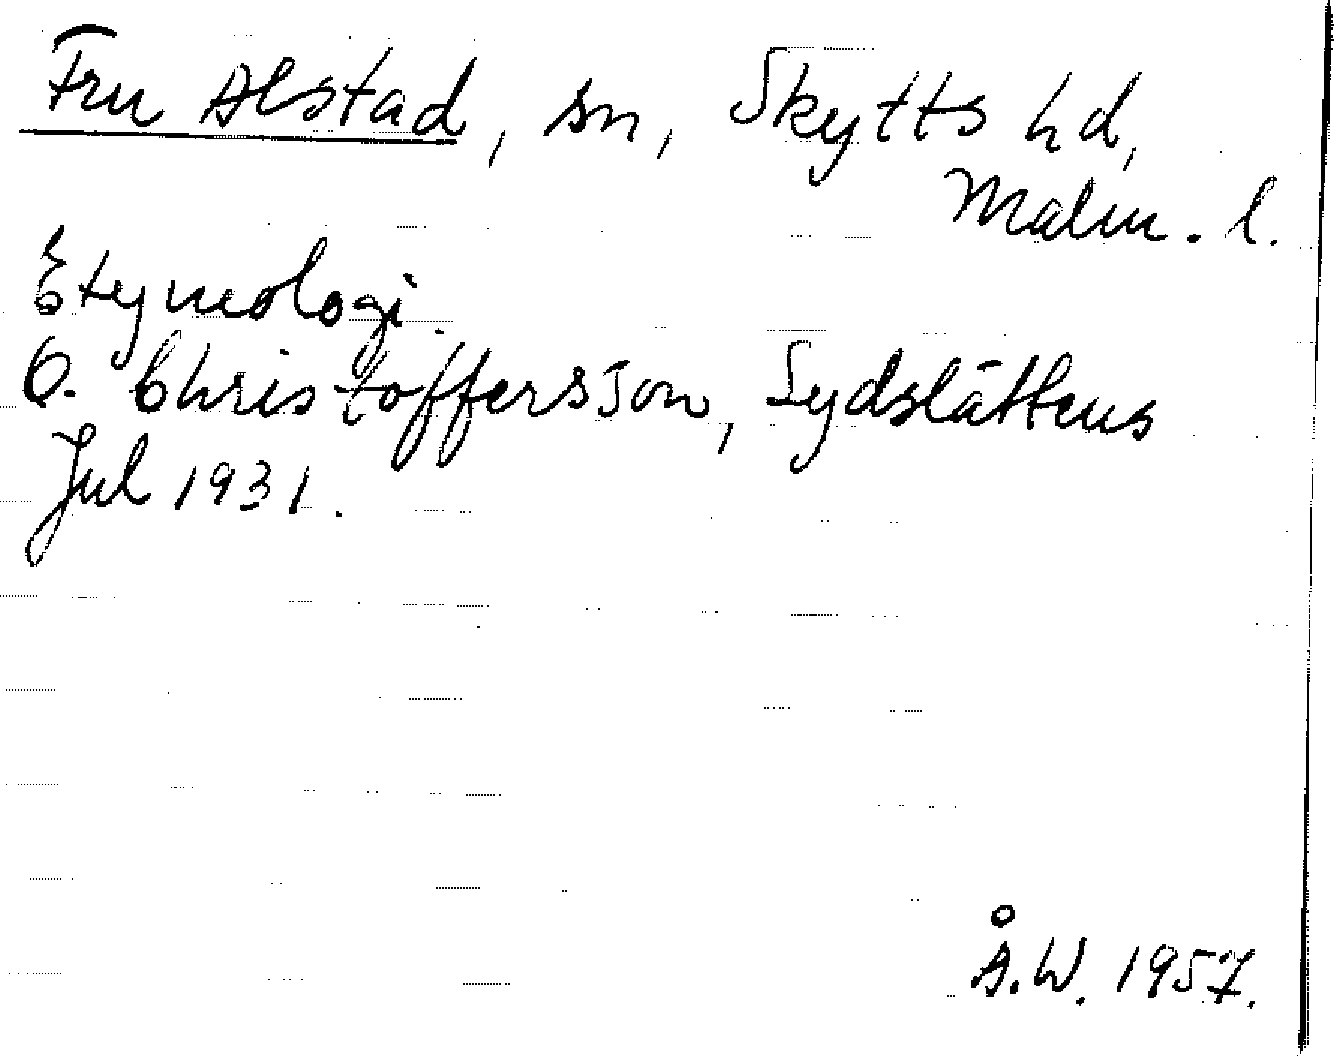 Fru Alstad, sn, Skytts hd,
Malm. l.
Etymologi.
O. Christoffersson, Sydslättens
Jul 1931.
Å.W. 1957.